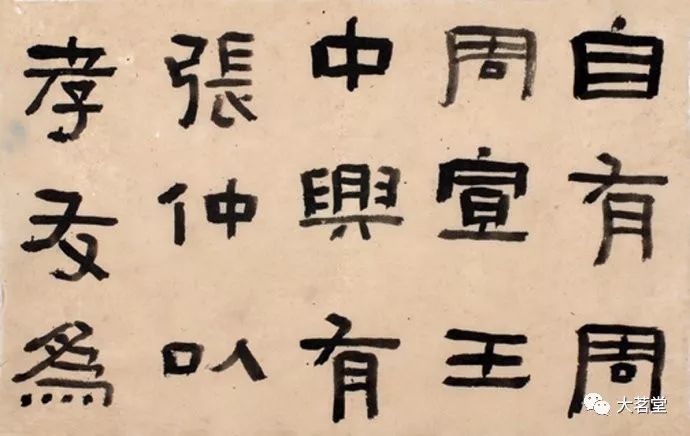 自有周
周宣王
中興有
張仲以
孝友為
大茗堂